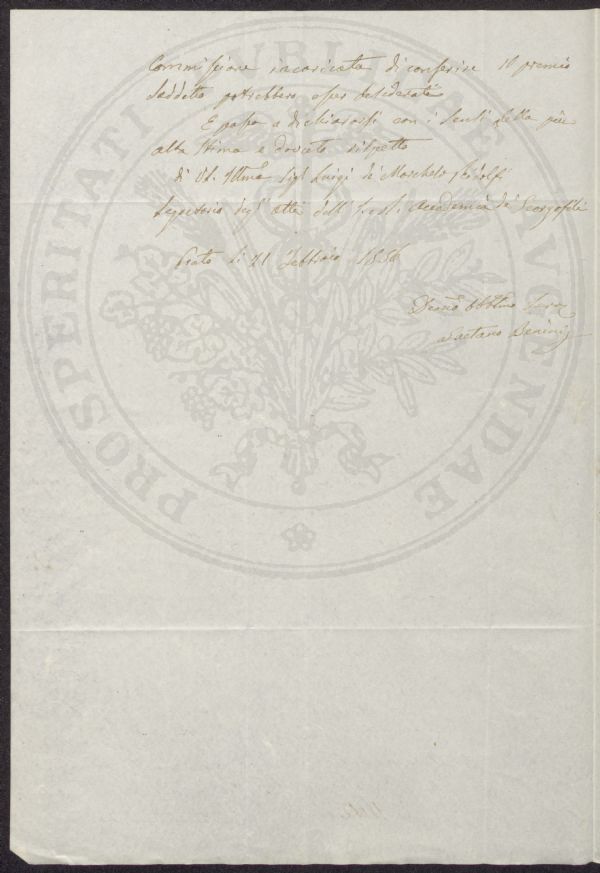 Commissione incaricata di conferire il premio
suddetto potrebbero esser desiderate
E passo a dichiararsi con i sensi della più
alta stima e dovuto rispetto
Di VS. Illma Sigr Luigi de Marchesi Ridolfi
Segretario degl' atti dell' I. e R. Accademia de Georgofili
Prato li 21 Febbraio 1856
Devmo Obblmo Serve
Gaetano Benini
PROSPERITATI PUBLICAE AUGENDAE